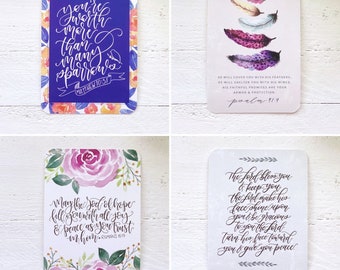 you're
worth
more than
many
sparrows
MATTHEW 10:31
HE WILL COVER YOU WITH HIS FEATHERS,
HE WILL SHELTER YOU WITH HIS WINGS.
HIS FAITHFUL PROMISES ARE YOUR
ARMOR & PROTECTION.
psalm 91:4
May the God of hope
fill you with all joy
& peace as you trust
in him.
ROMANS 15:13
The Lord bless you
& keep you,
the Lord make his
face shine upon
you & be gracious
to you the Lord
turn his face toward
you & give you peace